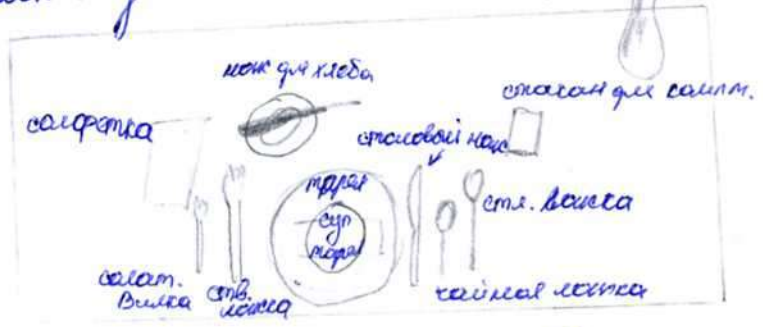 нож для хлеба
стакан для компт.
салфетка
столовый нож
тарел
суп
тарел
стл. вилка
салат.
Вилка
ств.
ложка
чайная ложка